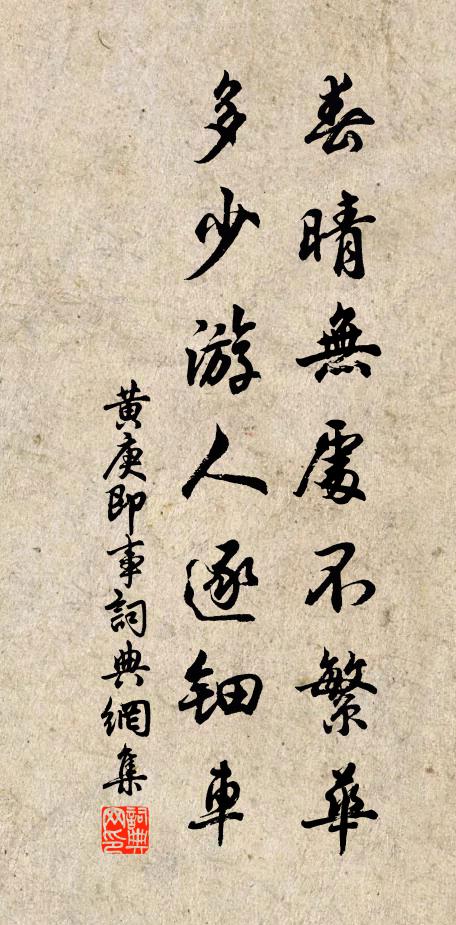 春晴無處不繁華
多少游人逐鈿車
黃庚即事詞典網集
詞典网印